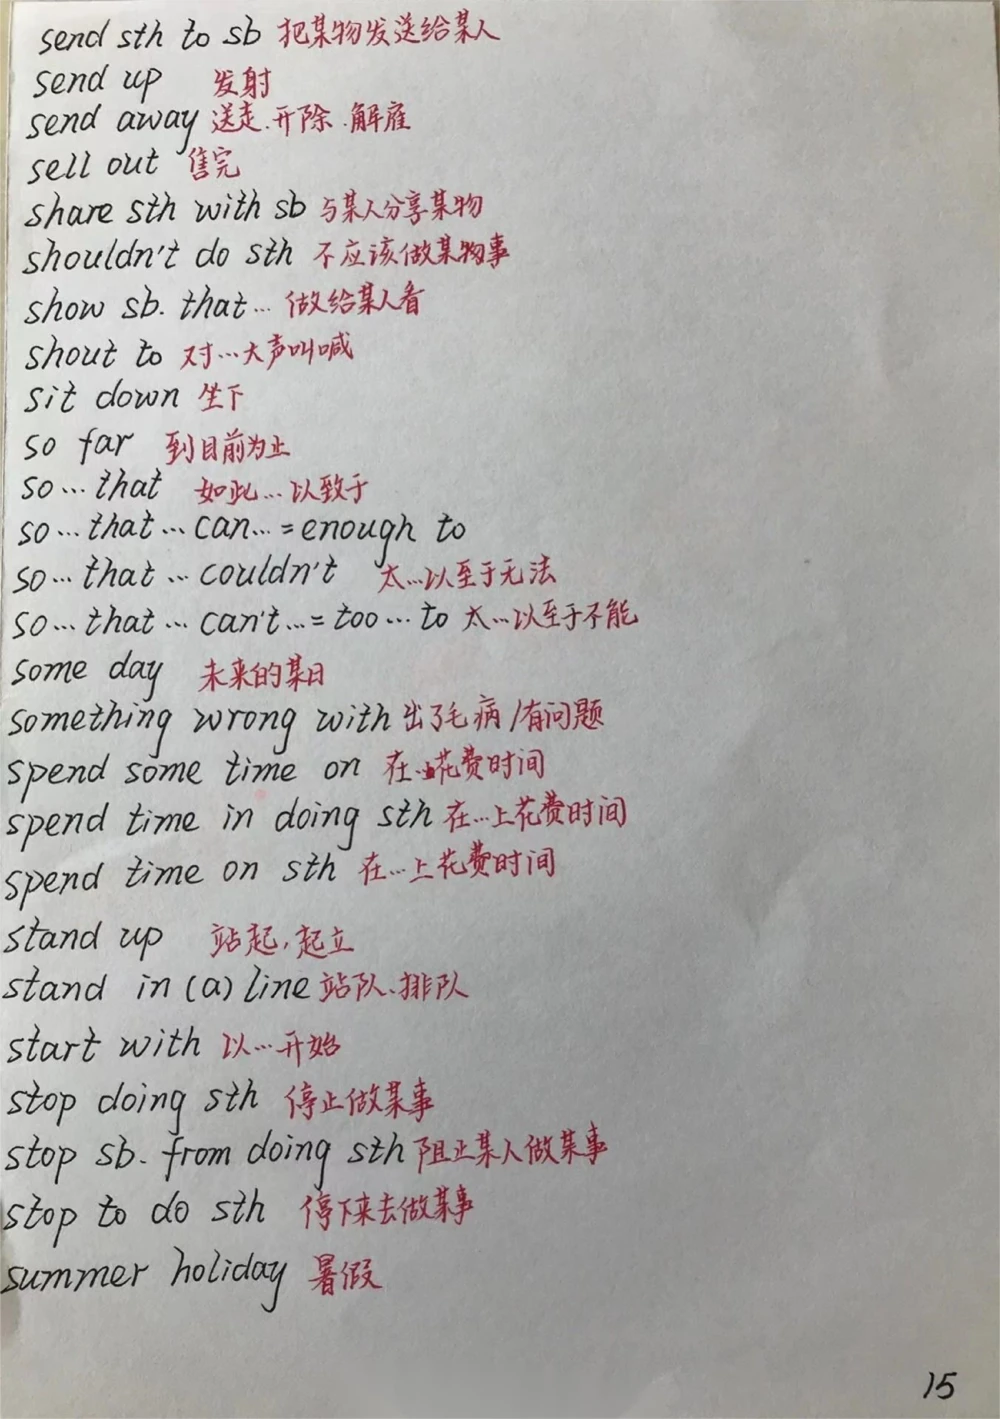 send sth to sb 把某物发送给某人
send up 发射
send away 送走.开除.解雇
sell out 售完
share sth with sb 与某人分享某物
shouldn't do sth 不应该做某物事
show sb. that… 做给某人看
shout to 对…大声叫喊
sit down 坐下
so far 到目前为止
so…that 如此…以致于
so…that…can…=enough to
so…that…couldn't 太…以至于无法
so…that…can't…=too…to 太…以至于不能
some day 未来的某日
something wrong with 出了毛病/有问题
spend some time on 在…花费时间
spend time in doing sth 在…上花费时间
spend time on sth 在…上花费时间
stand up 站起,起立
stand in (a) line 站队、排队
start with 以…开始
stop doing sth 停止做某事
stop sb. from doing sth 阻止某人做某事
stop to do sth 停下来去做某事
summer holiday 暑假
15